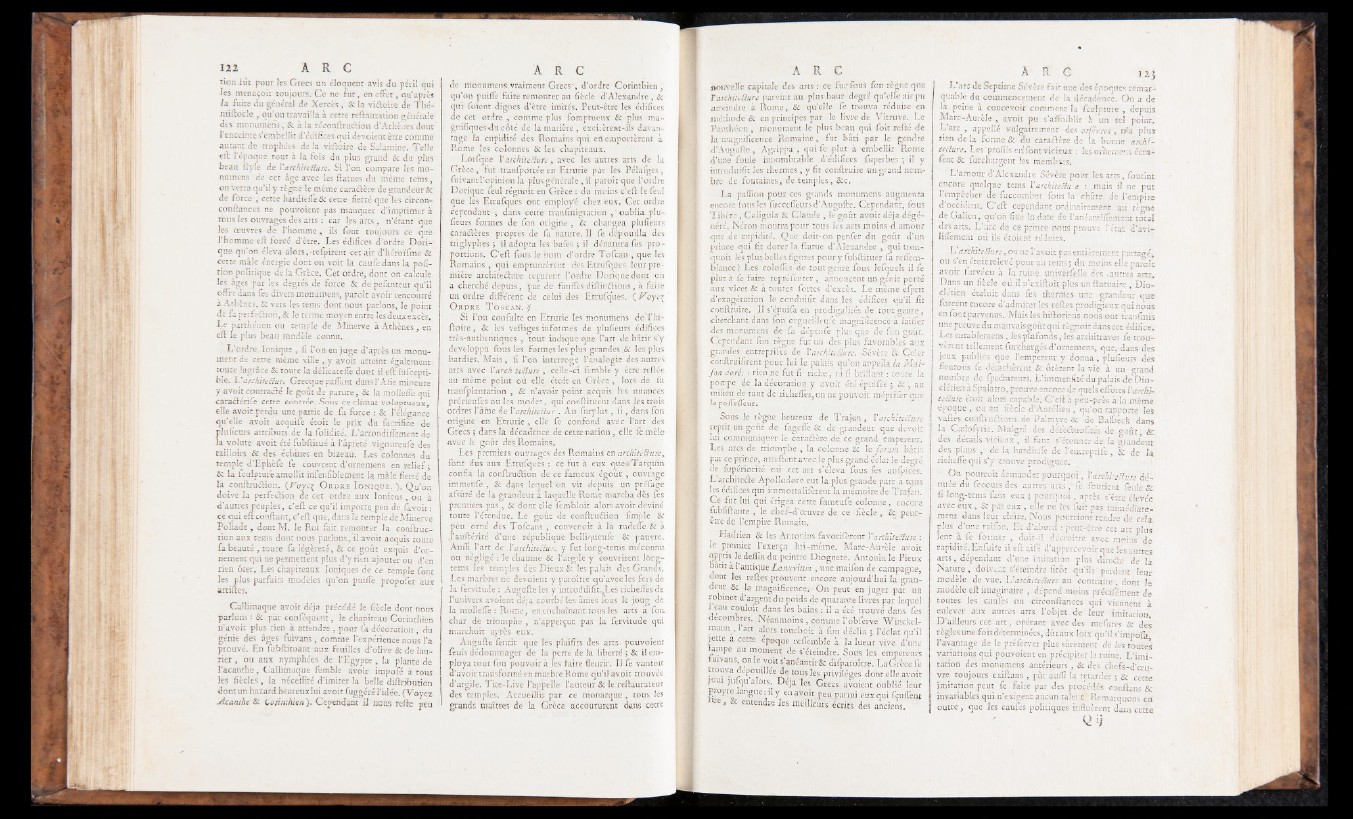 122 A R C
tion fut pour les Grecs un éloquent avis du péril qui
les menaçoit toujours. Ce ne fut, en effet, qu'après
la fuite du général de Xercès, & la victoire de Thé-
mistocle, qu'on travailla à cette restauration générale
des monumens, & à la réconstruction d'Athènes dont
l'enceinte s'embellit d'édifices qui devoient être comme
autant de trophées de la victoire de Salamine. Telle
est l'époque tout à la fois du plus grand & du plus
beau style de l'architecture. Si l'on compare les mo-
numens de cet âge avec les statues du même tems,
on verra qu'il y règne le même caractère de grandeur &
de force, cette hardiesse & cette fierté que les circon-
constances ne pouvoient pas manquer d'imprimer à
tous les ouvrages des arts : car les arts, n'étant que
les œuvres de l'homme, ils sont toujours ce que
l'homme est forcé d'être. Les édifices d'ordre Dori-
que qu'on éleva alors, respirent cet air d'héroïsme &
cette mâle énergie dont on voit la cause dans la posi-
tion politique de la Grèce. Cet ordre, dont on calcule
les âges par les degrés de force & de pesanteur qu'il
offre dans ses divers monumens, paroît avoir rencontré
à Athènes, & vers les tems dont nous parlons, le point
de sa perfection, & le terme moyen entre les deux excès.
Le parthénon ou temple de Minerve à Athènes, en
est le plus beau modèle connu.
L'ordre Ionique, si l'on en juge d'après un monu-
ment de cette même ville, y avoit atteint également
toute la grâce & toute la délicatesse dont il est suscepti-
ble. L'architecture Grecque passant dans l'Asie mineure
y avoit contracté le goût de parure, & la mollesse qui
caractérise cette contrée. Sous ce climat voluptueux,
elle avoit perdu une partie de sa force : & l'élégance
qu'elle avoit acquise étoit le prix du sacrifice de
plusieurs attributs de la solidité. L'arrondissement de
la volute avoit été substitué à l'âpreté vigoureuse des
tailloirs & des échines en bizeau. Les colonnes du
temple d'Ephèse se couvrent d'ornemens en relief ;
& la sculpture amollit insensiblement la mâle fierté de
la construction. (Voyez ORDRE IONIQUE. ). Qu'on
doive la perfection de cet ordre aux Ioniens, ou à
d'autres peuples, c'est ce qu'il importe peu de savoir :
ce qui est constant, c'est que, dans le temple de Minerve
Poliade, dont M. le Roi fait remonter la construc-
tion aux tems dont nous parlons, il avoit acquis toute
sa beauté, toute sa légèreté, & ce goût exquis d'or-
nement qui ne permettent plus d'y rien ajouter ou d'en
rien ôter. Les chapiteaux Ioniques de ce temple sont
les plus parfaits modèles qu'on puisse proposer aux
artistes.
Callimaque avoit déja précédé le siècle dont nous
parlons : & par conséquent, le chapiteau Corinthien
n'avoit plus rien à attendre, pour sa décoration, du
génie des âges suivans, comme l'expérience nous l'a
prouvé. En substituant aux feuilles d'olive & de lau-
rier, ou aux nymphées de l'Egypte, la plante de
l'acanthe, Callimaque semble avoir imposé à tous
les siècles, la nécessité d'imiter la belle distribution
dont un hazard heureux lui avoit suggéré l'idée. (Voyez
Acanthe & Corinthien). Cependant il nous reste peu
A R C
de monumens vraiment Grecs, d'ordre Corinthien,
qu'on puisse faire remonter au siècle d'Alexandre, &
qui soient dignes d'être imités. Peut-être les édifices
de cet ordre, comme plus somptueux & plus ma-
gnifiques du côté de la matière, excitèrent-ils davan-
tage la cupidité des Romains qui en emportèrent à
Rome les colonnes & les chapiteaux.
Lorsque l'architecture, avec les autres arts de la
Grèce, fut transportée en Etrurie par les Pélasges,
suivant l'opinion la plus générale, il paroît que l'ordre
Dorique seul régnoit en Grèce : du moins c'est le seul
que les Etrusques ont employé chez eux. Cet ordre
cependant, dans cette transmigration, oublia plu-
sieurs formes de son origine, & changea plusieurs
caractères propres de sa nature. Il se dépouilla des
triglyphes ; il adopta les bases ; il dénatura ses pro-
portions. C'est sous le nom d'ordre Toscan, que les
Romains, qui empruntèrent des Etrusques leur pre-
mière architecture reçurent l'ordre Dorique dont on
a cherché depuis, par de fausses distinctions, à faire
un ordre différent de celui des Etrusques. (Voyez
ORDRE TOSCAN.)
Si l'on consulte en Etrurie les monumens de l'hi-
stoire, & les vestiges informes de plusieurs édifices
très-authentiques, tout indique que l'art de bâtir s'y
developpa sous les formes les plus grandes & les plus
hardies. Mais, si l'on interroge l'analogie des autres
arts avec l'architecture, celle-ci semble y être restée
au même point où elle étoit en Grèce, lors de sa
transplantation, & n'avoir point acquis les nuances
précieuses ou les modes, qui constituent dans les trois
ordres l'âme de l'architecture. Au surplus, si, dans son
origine en Etrurie, elle se confond avec l'art des
Grecs ; dans la décadence de cette nation, elle se mêle
avec le goût des Romains.
Les premiers ouvrages des Romains en architecture,
sont dus aux Etrusques : ce fut à eux que Tarquin
confia la construction de ce fameux égoût, ouvrage
immense, & dans lequel on vit depuis un présage
assuré de la grandeur à laquelle Rome marcha dès ses
premiers pas, & dont elle sembloit alors avoir deviné
toute l'étendue. Le goût de construction simple &
peu orné des Toscans, convenoit à la rudesse & à
l'austérité d'une république belliqueuse & pauvre.
Aussi l'art de l'architecture y fut long-tems méconnu
ou négligé : le chaume & l'argile y couvrirent long-
tems les temples des Dieux & les palais des Grands.
Les marbres ne devoient y paroître qu'avec les fers de
la servitude : Auguste les y introduisit. Les richesses de
l'univers avoient déja courbé les âmes sous le joug de
la mollesse : Rome, enchaînant tous les arts à son
char de triomphe, n'apperçut pas la servitude qui
marchoit après eux.
Auguste sentit que les plaisirs des arts pouvoient
seuls dédommager de la perte de la liberté ; & il em-
ploya tout son pouvoir à les faire fleurir. Il se vantoit
d'avoir transformé en marbre Rome qu'il avoit trouvée
d'argile. Tite-Live l'appelle l'auteur & le restaurateur
des temples. Accueillis par ce monarque, tous les
grands maîtres de la Grèce accoururent dans cette
A R C
nouvelle capitale des arts : ce fut sous son règne que
l'architecture parvint au plus haut degré qu'elle ait pu
atteindre à Rome, & qu'elle se trouva réduite en
méthode & en principes par le livre de Vitruve. Le
Panthéon, monument le plus beau qui soit resté de
la magnificence Romaine, fut bâti par le gendre
d'Auguste, Agrippa, qui se plut à embellir Rome
d'une foule innombrable d'édifices superbes ; il y
introduisit les thermes, y fit construire un grand nom-
bre de fontaines, de temples, &c.
La passion pour ces grands monumens augmenta
encore sous les successeurs d'Auguste. Cependant, sous
Tibère, Caligula & Claude, le goût avoit déja dégé-
néré. Néron montra pour tous les arts moins d'amour
que de cupidité. Que doit-on penser du goût d'un
prince qui fit dorer la statue d'Alexandre, qui tron-
quoit les plus belles figures pour y substituer sa ressem-
blance ? Les colosses de tout genre sous lesquels il se
plut à se faire représenter, annoncent un génie porté
aux vices & à toutes sortes d'excès. Le même esprit
d'exagération le conduisit dans les édifices qu'il fit
construire. Il s'épuisa en prodigalités de tout genre,
cherchant dans son orgueilleuse magnificence à laisser
des monumens de sa dépense plus que de son goût.
Cependant son règne fut un des plus favorables aux
grandes entreprises de l'architecture. Sévère & Celer
construisirent pour lui le palais qu'on appella la Mai-
son dorée : rien ne fut si riche, ni si brillant : toute la
pompe de la décoration y avoit été épuisée ; &, au
milieu de tant de richesses, on ne pouvoit mépriser que
la possesseur.
Sous le règne heureux de Trajan, l'architecture
reprit un goût de sagesse & de grandeur que devoit
lui communiquer le caractère de ce grand empereur.
Les arcs de triomphe, la colonne & le forum bâtis
par ce prince, attestent avec le plus grand éclat le degré
de supériorité où cet art s'éleva sous ses auspices.
L'architecte Apollodore eut la plus grande part à tous
les édifices qui immortalisèrent la mémoire de Trajan.
Ce fut lui qui érigea cette fameuse colonne, encore
subsistante, le chef-d'œuvre de ce siècle, & peut-
être de l'empire Romain.
Hadrien & les Antonins favorisèrent l'architecture :
le premier l'exerça lui-même. Marc-Aurèle avoit
appris le dessin du peintre Diognete. Antonin le Pieux
bâtit à l'antique Lanuvium, une maison de campagne,
dont les restes prouvent encore aujourd'hui la gran-
deur & la magnificence. On peut en juger par un
robinet d'argent du poids de quarante livres par lequel
l'eau couloit dans les bains : il a été trouvé dans ses
décombres. Néanmoins, comme l'observe Winckel-
mann, l'art alors touchoit à son déclin ; l'éclat qu'il
jette à cette époque ressemble à la lueur vive d'une
lampe au moment de s'éteindre. Sous les empereurs
suivans, on le voit s'anéantir & disparoître. La Grèce se
trouva dépouillée de tous les privilèges dont elle avoit
joui jusqu'alors. Déja les Grecs avoient oublié leur
propre langue : il y en avoit peu parmi eux qui sçussent
lire, & entendre les meilleurs écrits des anciens.
A R C 123
L'arc de Septime Sévère fait une des époques remar-
quable du commencement de la décadence. On a de
la peine à concevoir comment la sculpture, depuis
Marc-Aurèle, avoit pu s'affoiblir à un tel point.
L'arc, appellé vulgairement des orfèvres, n'a plus
rien de la forme & du caractère de la bonne archi-
tecture. Les profils en sont vicieux : les ornemens écra-
sent & surchargent les membres.
L'amour d'Alexandre Sévère pour les arts, soutint
encore quelque tems l'architecture : mais il ne put
l'empêcher de succomber sous la chûte de l'empire
d'occident. C'est cependant ordinairement au règne
de Galien, qu'on fixe la date de l'anéantissement total
des arts. L'arc de ce prince nous prouve l'état d'avi-
lissement où ils étoient réduits.
L'architecture, ou ne l'avoit pas entierement partagé,
ou s'en étoit relevé pour un tems ; du moins elle paroît
avoir survécu à la ruine universelle des autres arts.
Dans un siècle où il n'existoit plus un statuaire, Dio-
clétien étaloit dans ses thermes une grandeur que
forcent encore d'admirer les restes prodigieux qui nous
en sont parvenus. Mais les historiens nous ont transmis
une preuve du mauvais goût qui régnoit dans cet édifice.
Les entablemens, les plafonds, les architraves se trou-
vèrent tellement surchargés d'ornemens, que, dans des
jeux publics que l'empereur y donna, plusieurs des
fleurons se détachèrent & ôtèrent la vie à un grand
nombre de spectateurs. L'immensité du palais de Dio-
clétien à Spalatro, prouve encore de quels efforts l'archi-
tecture étoit alors capable. C'est à peu-près à la même
époque, ou au siècle d'Aurélien, qu'on rapporte les
vastes constructions de Palmyre & de Balbeck dans
la Cœlosyrie. Malgré des défectuosités de goût, &
des détails vicieux, il faut s'étonner de la grandeur
des plans, de la hardiesse de l'entreprise, & de la
richesse qui s'y trouve prodiguée.
On pourroit demander pourquoi, l'architecture dé-
nuée du secours des autres arts, se soutient seule &
si long-tems sans eux ; pourquoi, après s'être élevée
avec eux, & par eux, elle ne les suit pas immédiate-
ment dans leur chûte. Nous pourrions rendre de cela
plus d'une raison. Et d'abord : peut-être cet art plus
lent à se former, doit-il décroître avec moins de
rapidité. Ensuite il est aisé d'appercevoir que les autres
arts, dépendant d'une imitation plus directe de la
Nature, doivent s'éteindre sitôt qu'ils perdent leur
modèle de vue. L'architecture au contraire, dont le
modèle est imaginaire, dépend moins précisément de
toutes les causes ou circonstances qui viennent à
enlever aux autres arts l'objet de leur imitation.
D'ailleurs cet art, opérant avec des mesures & des
règles une fois déterminées, dût aux loix qu'il s'imposa,
l'avantage de se préserver plus sûrement de les toutes
variations qui pouvoient en précipiter la ruine. L'imi-
tation des monumens antérieurs, & des chefs-d'œu-
vre toujours existans, pût aussi la retarder ; & cette
imitation peut se faire par des procédés constans &
invariables qui n'exigent aucun talent. Remarquons en
outre, que les causes politiques influèrent dans cette
Q ij